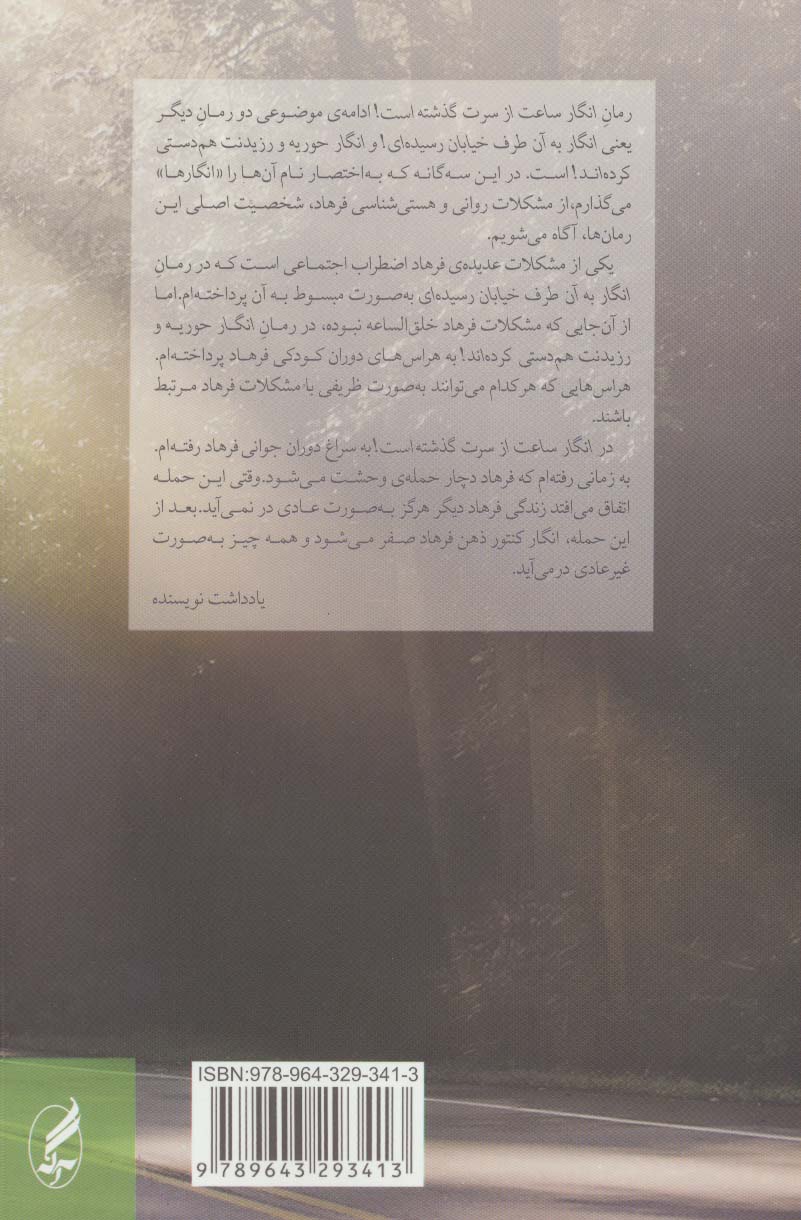 رمانِ انگار ساعت از سرت گذشته است! ادامه‌ی موضوعی دو رمانِ دیگر
یعنی انگار به آن طرف خیابان رسیده‌ای! و انگار حوریه و رزیدنت هم‌دستی
کرده‌اند! است. در این سه‌گانه که به‌اختصار نام آن‌ها را «انگارها»
می‌گذارم، از مشکلات روانی و هستی‌شناسی فرهاد، شخصیت اصلی این
رمان‌ها، آگاه می‌شویم.
یکی از مشکلات عدیده‌ی فرهاد اضطراب اجتماعی است که در رمانِ
انگار به آن طرف خیابان رسیده‌ای به‌صورت مبسوط به آن پرداخته‌ام. اما
از آن‌جایی که مشکلات فرهاد خلق‌الساعه نبوده، در رمانِ انگار حوریه و
رزیدنت هم‌دستی کرده‌اند! به هراس‌های دوران کودکی فرهاد پرداخته‌ام.
هراس‌هایی که هر کدام می‌توانند به‌صورت ظریفی با مشکلات فرهاد مرتبط
باشند.
در انگار ساعت از سرت گذشته است! به سراغ دوران جوانی فرهاد رفته‌ام.
به زمانی رفته‌ام که فرهاد دچار حمله‌ی وحشت می‌شود. وقتی این حمله
اتفاق می‌افتد زندگی فرهاد دیگر هرگز به‌صورت عادی در نمی‌آید. بعد از
این حمله، انگار کنتور ذهن فرهاد صفر می‌شود و همه چیز به‌صورت
غیرعادی درمی‌آید.
یادداشت نویسنده
ISBN:978-964-329-341-3
9 789643 293413
آگه